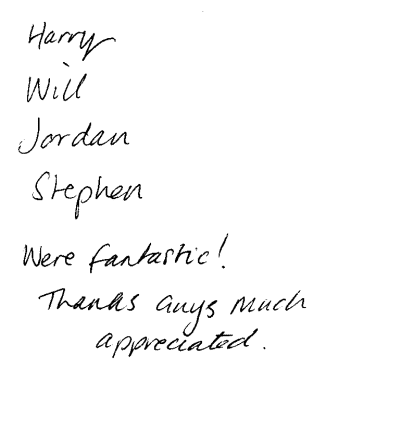 Harry
Will
Jordan
Stephen
Were fantastic!
Thanks guys much
appreciated.